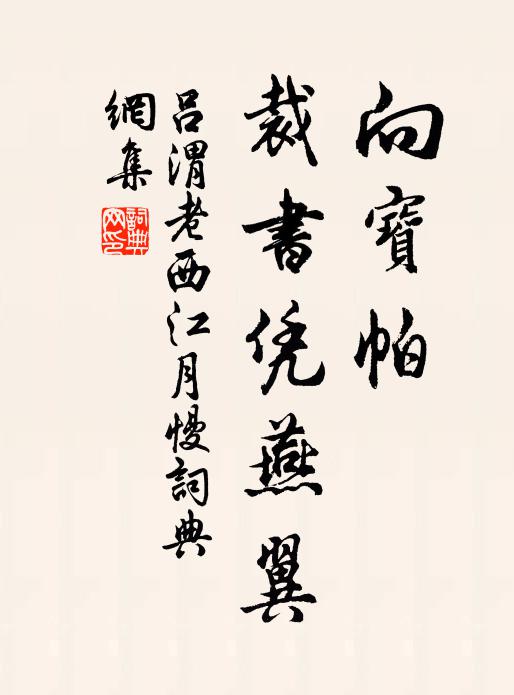 向寶帕
裁書凭燕翼
吕渭老西江月慢詞典
網集
詞典
网印